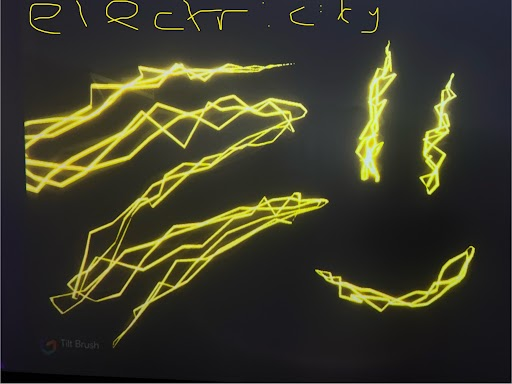 electricity
Tilt Brush